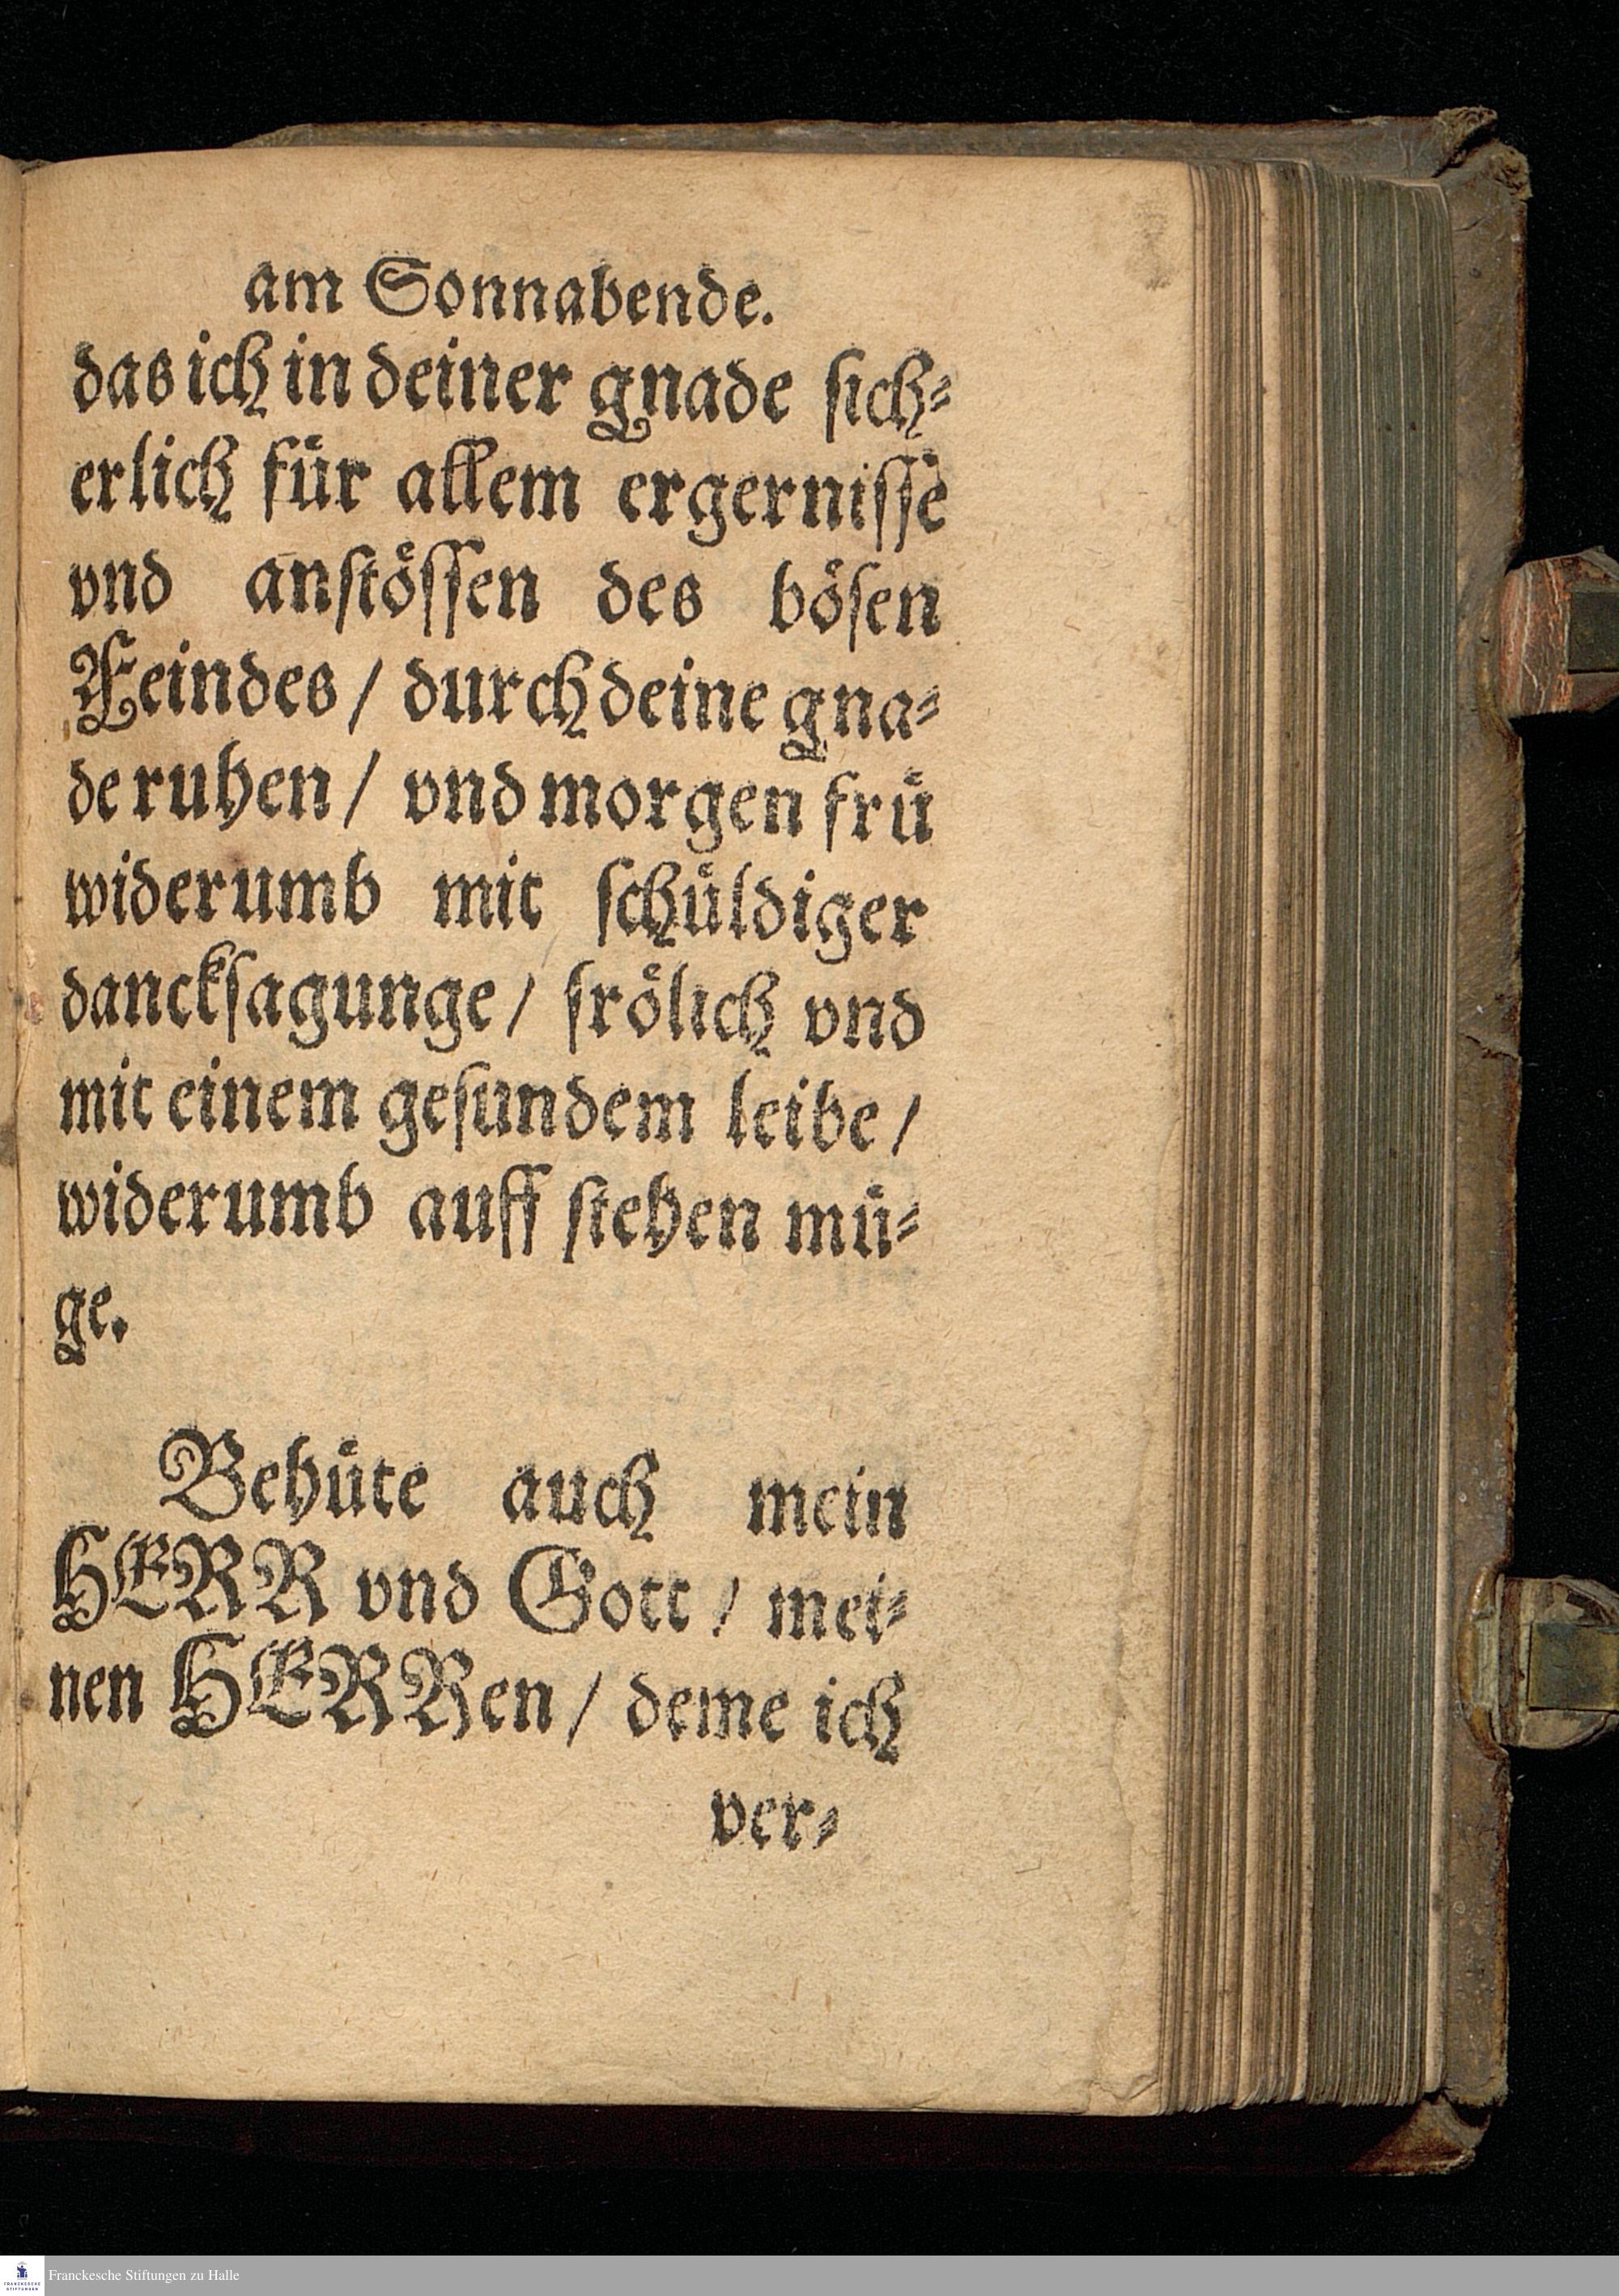 am Sonnabende.
das ich in deiner gnade sich⸗
erlich für allem ergernisse
vnd anstössen des bösen
Feindes / durch deine gna⸗
de ruhen / vnd morgen frü
widerumb mit schüldiger
dancksagunge / frölich vnd
mit einem gesundem leibe /
widerumb auff stehen mü⸗
ge.
Behüte auch mein
HERR vnd Gott / mei⸗
nen HERRen / deme ich
ver⸗
FRANCKESCHE
STIFTUNGEN
Franckesche Stiftungen zu Halle